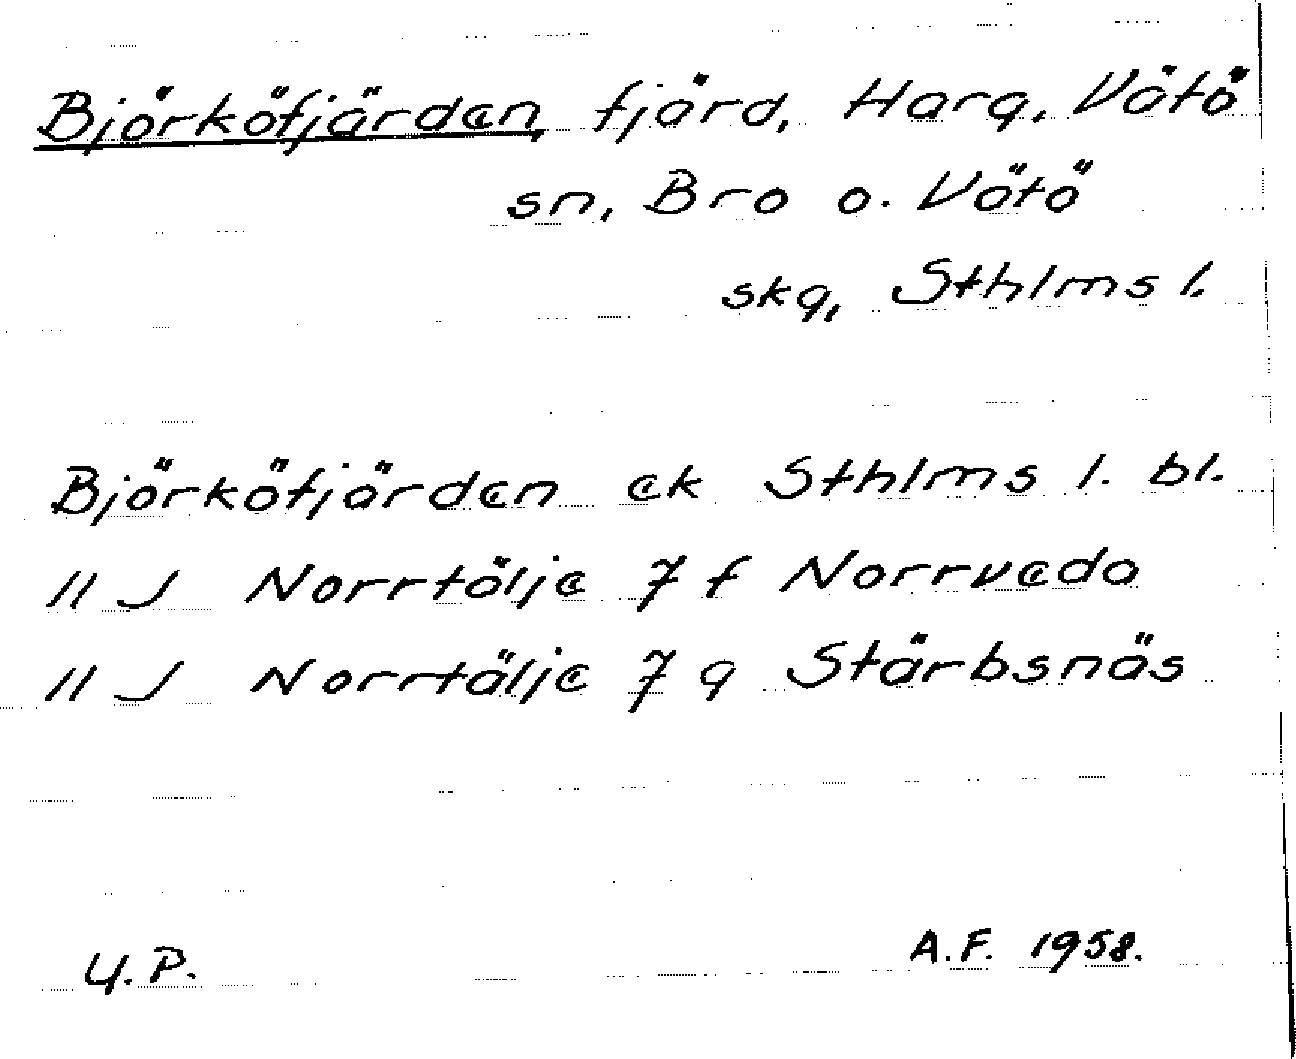 Björköfjärden, fjärd, Harg, Vätö
sn, Bro o. Vätö
skg, Sthlms l.
Björköfjärden ek Sthlms l. bl.
11 J Norrtälje 7 f Norrveda
11 J Norrtälje 7 g Stärbsnäs
U.P. A.F. 1958.